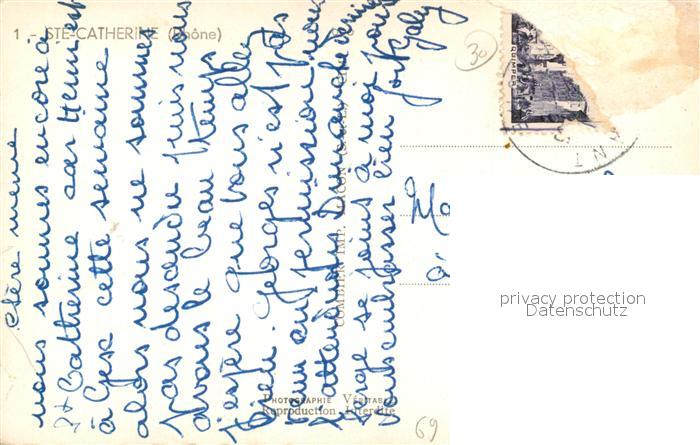 1 - STE-CATHERINE (Rhône)
chère mémé
nous sommes encore à
St Catherine car Henri est
à Gex cette semaine
alors nous ne sommes
pas descendu puis nous
avons le beau temps
j'espère que vous allez
bien. Georges n'est pas
venu en permission nous
l'attendions Dimanche dernier
Serge se joins à moi pour
vous embrasser bien fort
Gaby
COMBIER IMP. MACON
PHOTOGRAPHIE VÉRITABLE
Reproduction Interdite
30
QUIMPER
69
privacy protection
Datenschutz